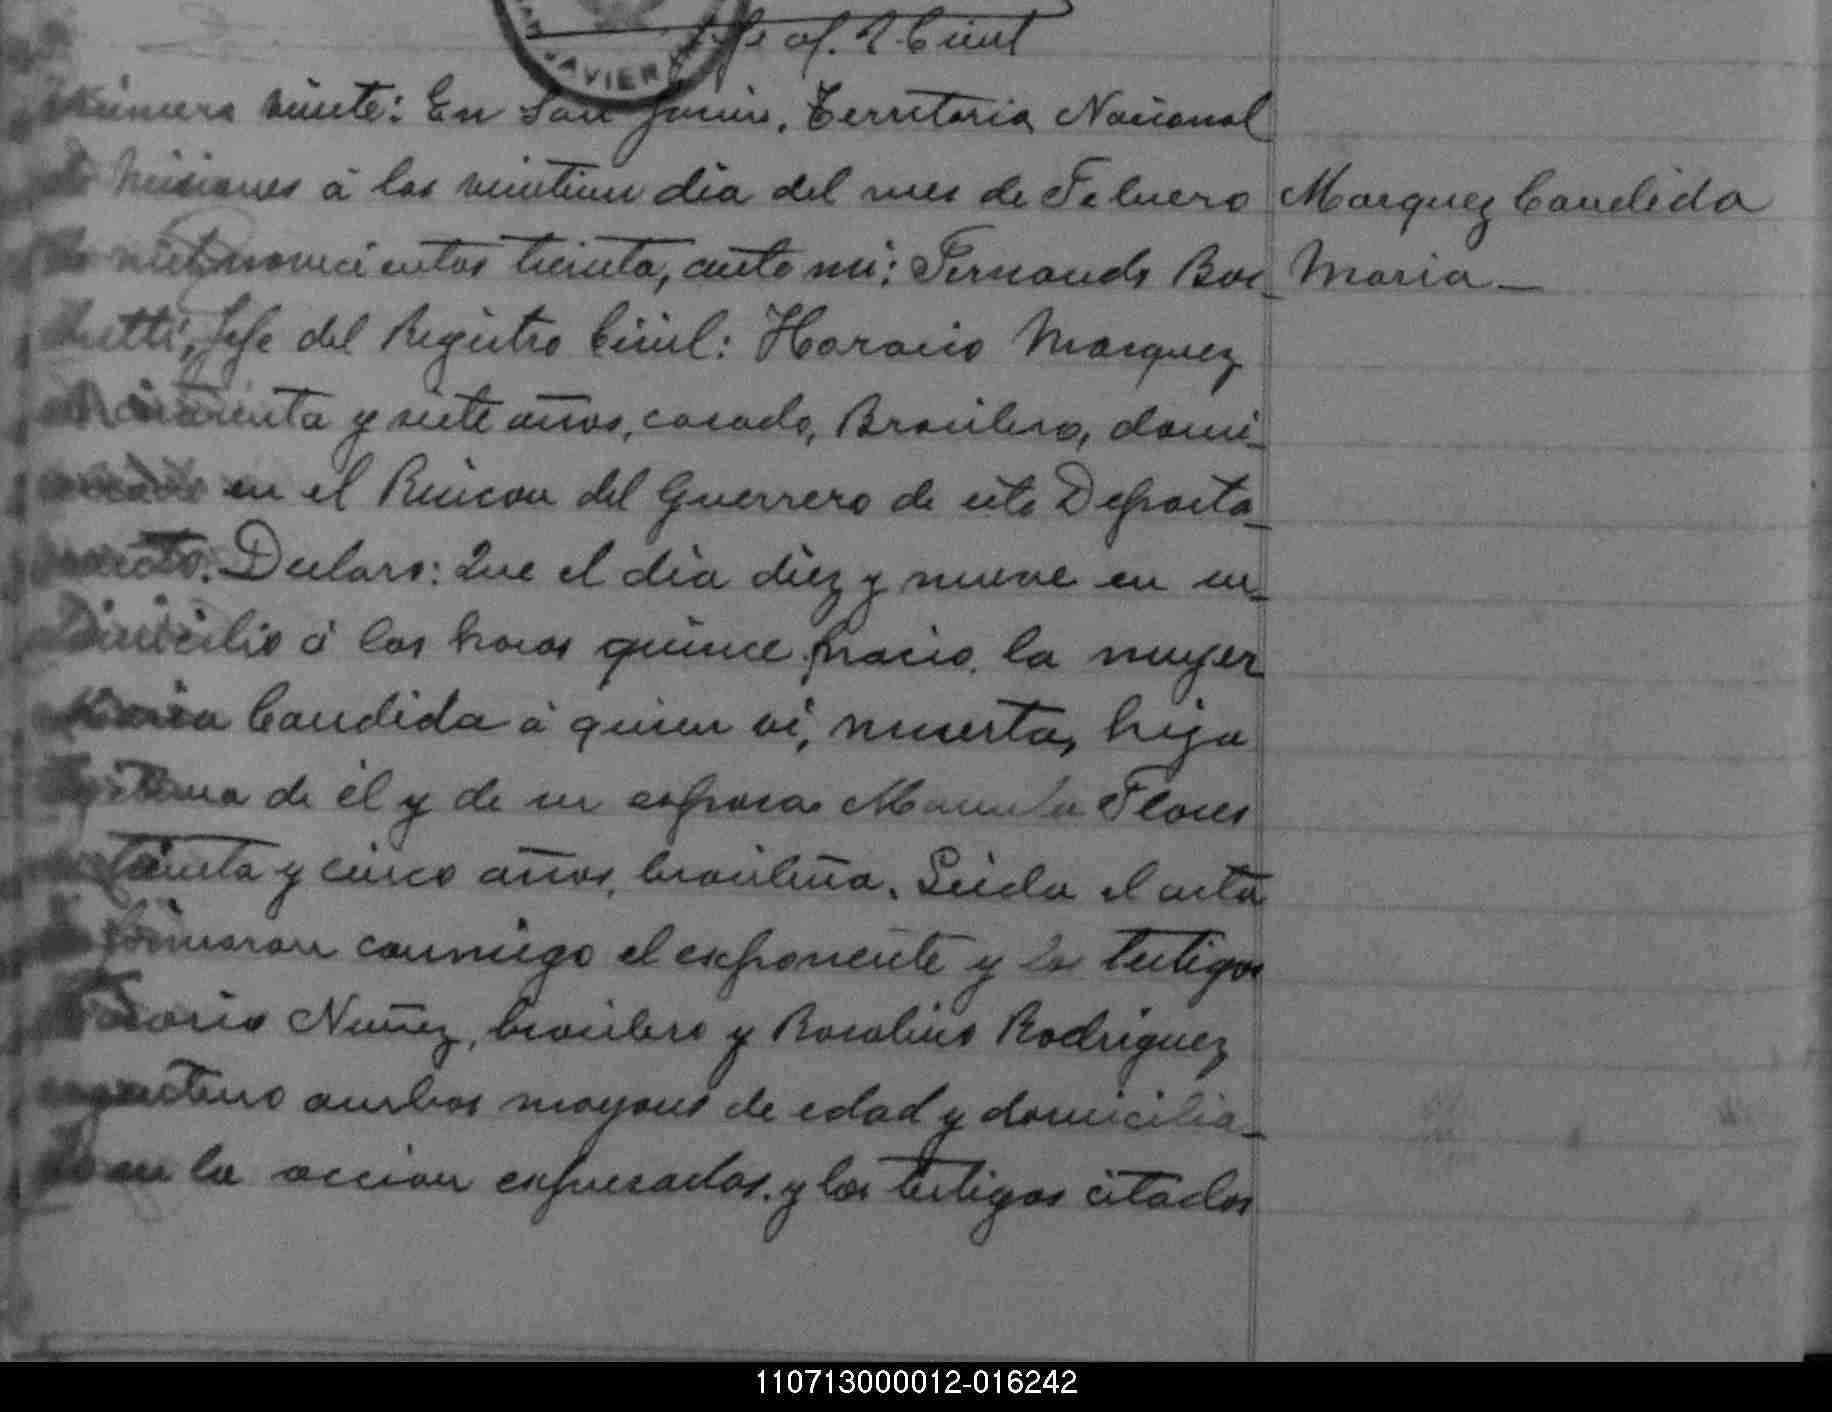 JAVIER
Jefe of. R. Civil
Número veinte: En San Javier, Territorio Nacional
de Misiones á los veintiun dia del mes de Febrero
de mil novecientos treinta, ante mi: Fernando Bos-
chetti, Jefe del Registro Civil: Horacio Marquez
de cuarenta y siete años, casado, Brasilero, domi-
ciliado en el Rincon del Guerrero de este Departa-
mento. Declaro: Que el dia diez y nueve en su
Dimicilio á las horas quince nacio la mujer
Maria Candida á quien vi, muerta, hija
legitima de él y de su esposa Manuela Flores
de treinta y cinco años, brasileña. Leida el acta
la firmaron conmigo el exponente y los testigos
Nuñez, brasilero y Rosalino Rodriguez
argentino ambos mayores de edad y domicilia-
dos en la accion expresados. y los testigos citados
Marquez Candida
Maria_
110713000012-016242